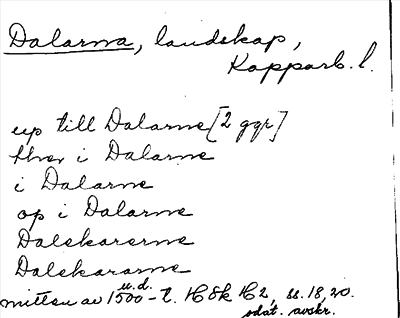 Dalarna, landskap,
Kopparb. l.
up till Dalarne [2 ggr]
ther i Dalarne
i Dalarne
op i Dalarne
Dalekarerne
Dalekararne
u.d.
mitten av 1500-t. H 8k H 2, ss. 18, 20.
odat. avskr.